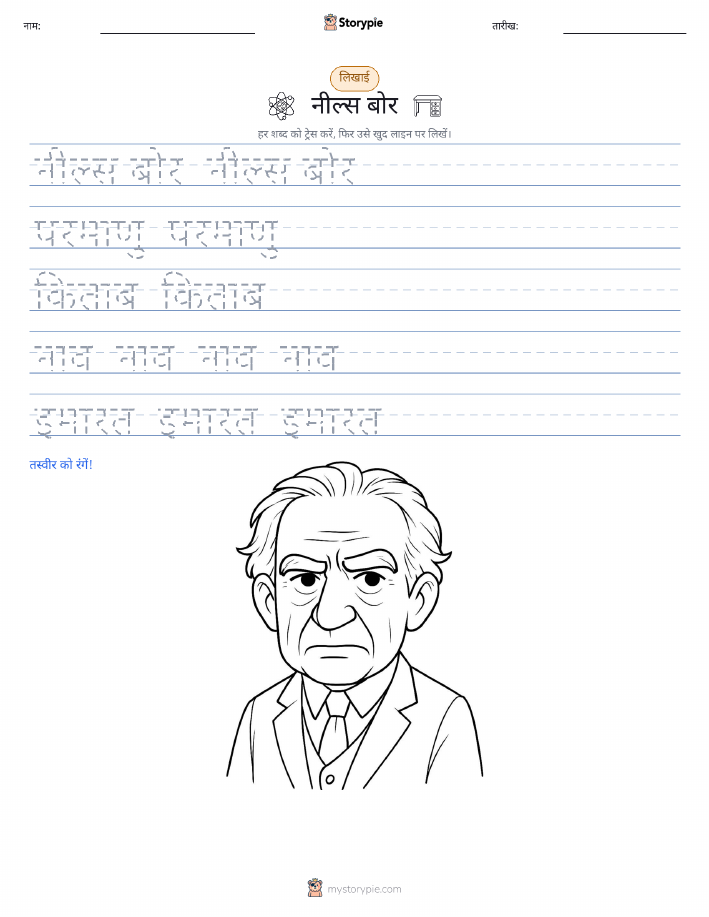 नाम: Storypie तारीख:
लिखाई
नील्स बोर
हर शब्द को ट्रेस करें, फिर उसे खुद लाइन पर लिखें।
नील्स बोर नील्स बोर
परमाणु परमाणु
किताब किताब
नाव नाव नाव नाव
इमारत इमारत इमारत
तस्वीर को रंगें!
mystorypie.com